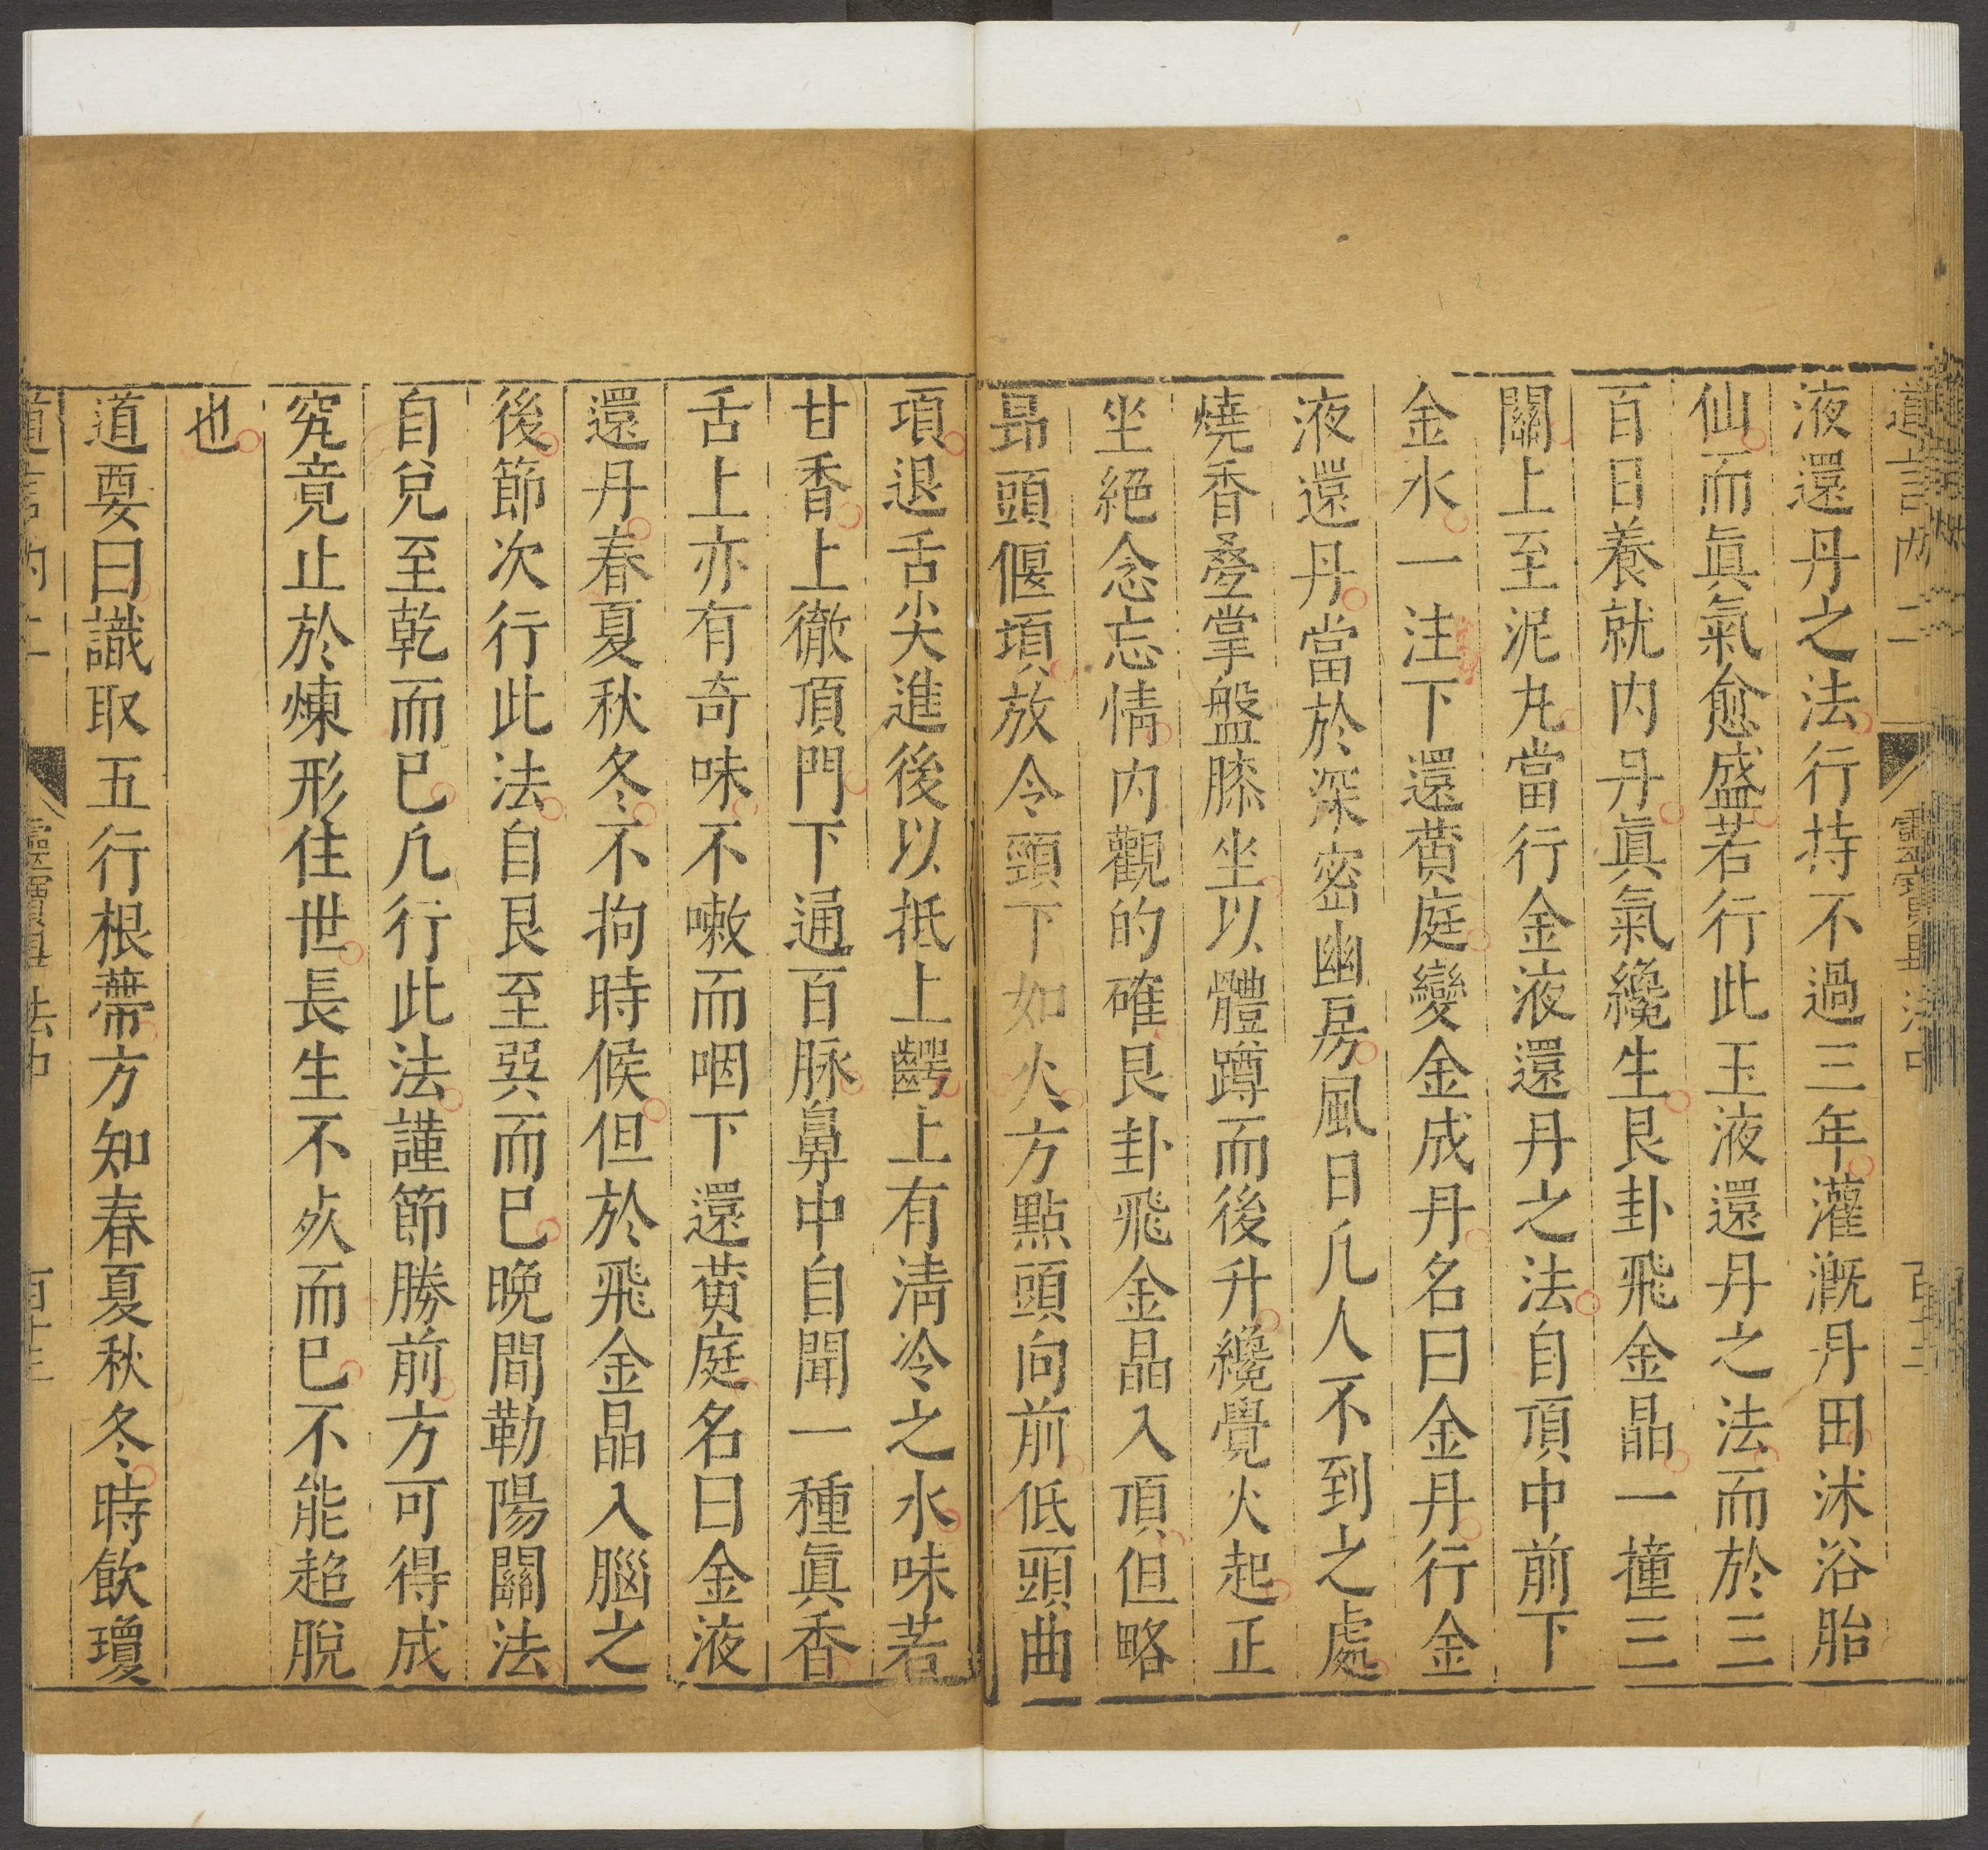 道言內二
靈寶畢法中
液還丹之法行持不過三年灌漑丹田沭浴胎
仙而眞氣愈盛若行此玉液還丹之法而於三
百日養就内丹眞氣纔生艮卦飛金晶一撞三
關上至泥丸當行金液還丹之法自頂中前下
金水一注下還黄庭變金成丹名曰金丹行金
液還丹當於深密幽房風日凡人不到之處
燒香疊掌盤膝坐以體蹲而後升纔覺火起正
坐絕念忘情内觀的確艮卦飛金晶入頂但略
昻頭偃項放令頸下如火方點頭向前低頭曲
項退舌尖進後以抵上齶上有淸冷之水味若
甘香上徹頂門下通百脉鼻中自聞一種眞香
舌上亦有奇味不嗽而咽下還黄庭名曰金液
還丹春夏秋冬不拘時候但於飛金晶入腦之
後節次行此法自艮至巽而巳晚間勒陽關法
自兌至乾而巳凡行此法謹節勝前方可得成
究竟止於煉形住世長生不死而巳不能超脫
也
道要曰識取五行根蔕方知春夏秋冬時飲瓊
道言內二
靈寶畢法中
百十三